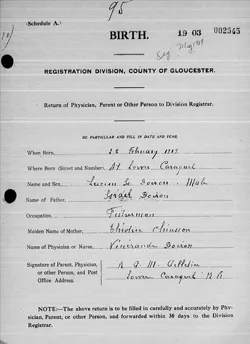 95
(Schedule A.)
BIRTH.
19 03
002545
REGISTRATION DIVISION, COUNTY OF GLOUCESTER.
Return of Physician, Parent or Other Person to Division Registrar.
BE PARTICULAR AND FILL IN DATE AND YEAR.
When Born, 22 February
Where Born (Street and Number), At Lower Caraquet
Name and Sex, Lucien Doiron Male
Name of Father, Doiron
Occupation, Fisherman
Maiden Name of Mother, Elodie Chiasson
Name of Physician or Nurse, Vénérande Doiron
Signature of Parent, Physician,
or other Person, and Post
Office Address.
Lower Caraquet N B
NOTE:—The above return is to be filled in carefully and accurately by Physician, Parent, or other Person, and forwarded within 36 days to the Division Registrar.